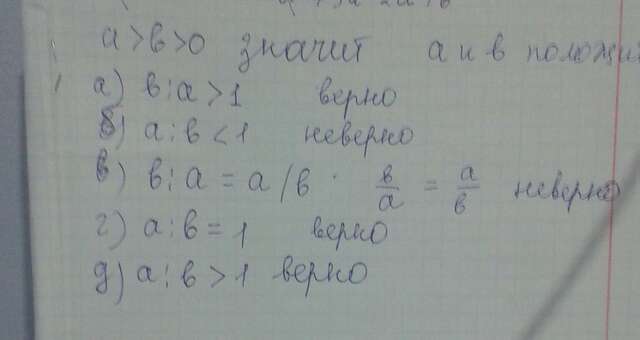 а > в > 0 значит а и в полож
а) в : а > 1 верно
б) а : в < 1 неверно
в) в : а = а / в · в/а = а/в неверно
г) а : в = 1 верно
д) а : в > 1 верно